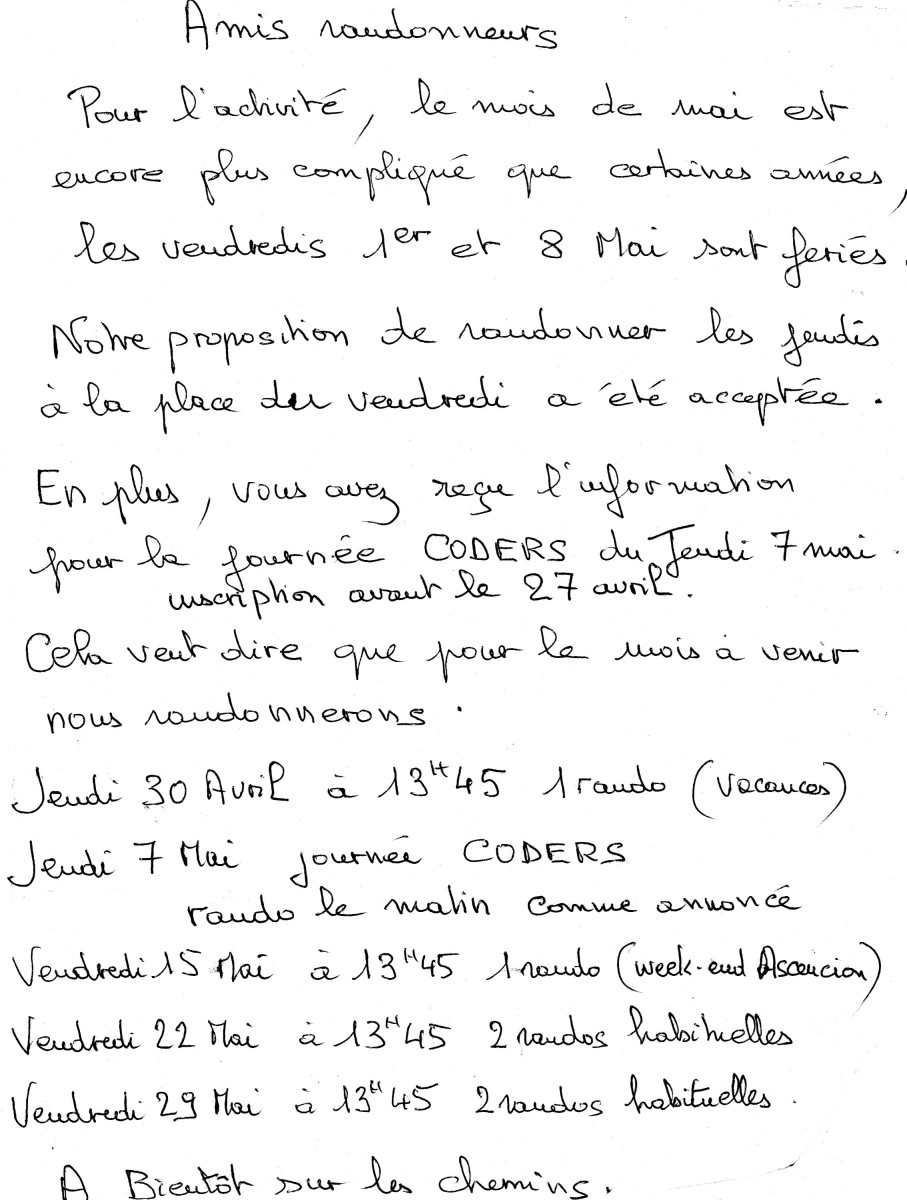 Amis randonneurs
Pour l'activité, le mois de mai est
encore plus compliqué que certaines années,
les vendredis 1er et 8 Mai sont feriés.
Notre proposition de randonner les jeudis
à la place du vendredi a été acceptée.
En plus, vous avez reçu l'information
pour la journée CODERS du Jeudi 7 mai.
inscription avant le 27 avril.
Cela veut dire que pour le mois à venir
nous randonnerons.
Jeudi 30 Avril à 13H45 1 rando (vacances)
Jeudi 7 Mai journée CODERS
rando le matin comme annoncé
Vendredi 15 Mai à 13H45 1 rando (week-end Ascencion)
Vendredi 22 Mai à 13H45 2 randos habituelles
Vendredi 29 Mai à 13H45 2 randos habituelles.
A Bientôt sur les chemins.